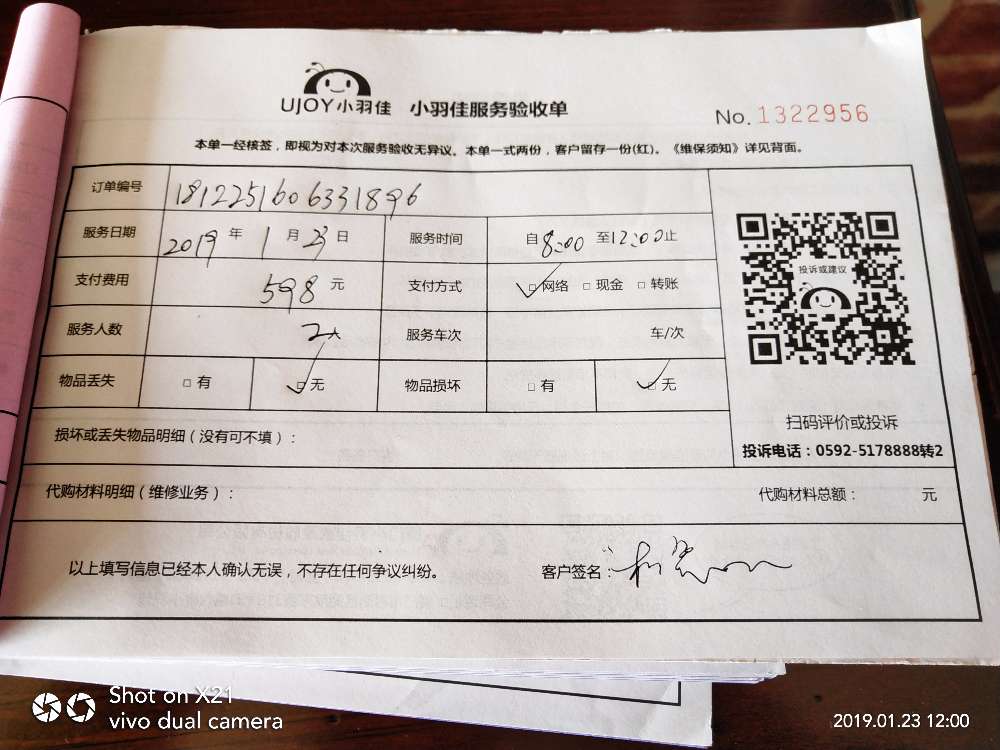 UJOY小羽佳 小羽佳服务验收单
No. 1322956
本单一经核签，即视为对本次服务验收无异议。本单一式两份，客户留存一份(红)。《维保须知》详见背面。
订单编号 1812251606331896
服务日期 2019 年 1 月 23 日 服务时间 自8:00 至12:00止
支付费用 598 元 支付方式 ☑网络 □现金 □转账
投诉或建议
服务人数 2人 服务车次 车/次
物品丢失 □有 ☑无 物品损坏 □有 ☑无
扫码评价或投诉
损坏或丢失物品明细（没有可不填）：
投诉电话：0592-5178888转2
代购材料明细（维修业务）： 代购材料总额： 元
以上填写信息已经本人确认无误，不存在任何争议纠纷。 客户签名：
Shot on X21
vivo dual camera
2019.01.23 12:00